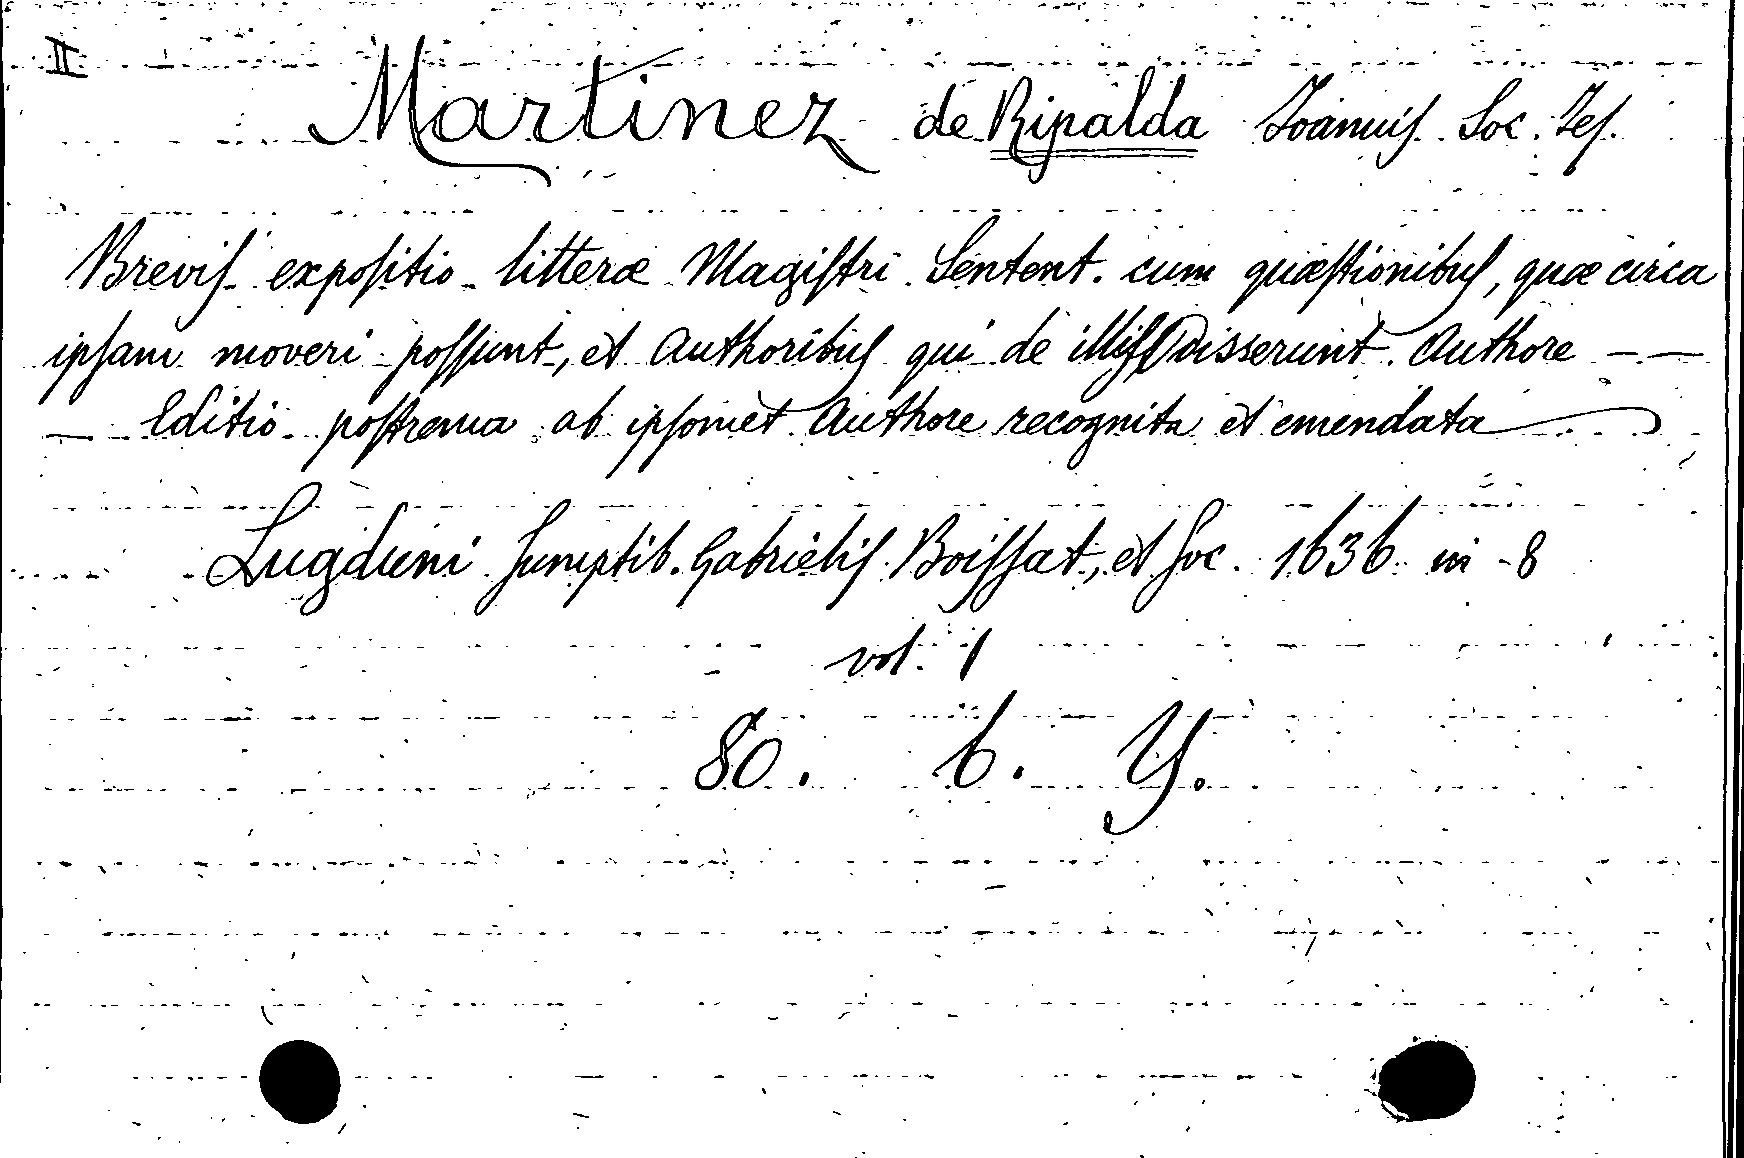 II
Martinez de Ripalda Ioannis Soc. Ies.
Brevis expositio litteræ Magistri Sentent. cum quæstionibus, quæ circa
ipsam moveri possunt, et Authoribus qui de illis disserunt. Authore — —
— Editio postrema ab ipsomet Authore recognita et emendata
Lugduni sumptib. Gabrielis Boissat, et soc. 1636 in-8
vol. 1
80. 6. Y.